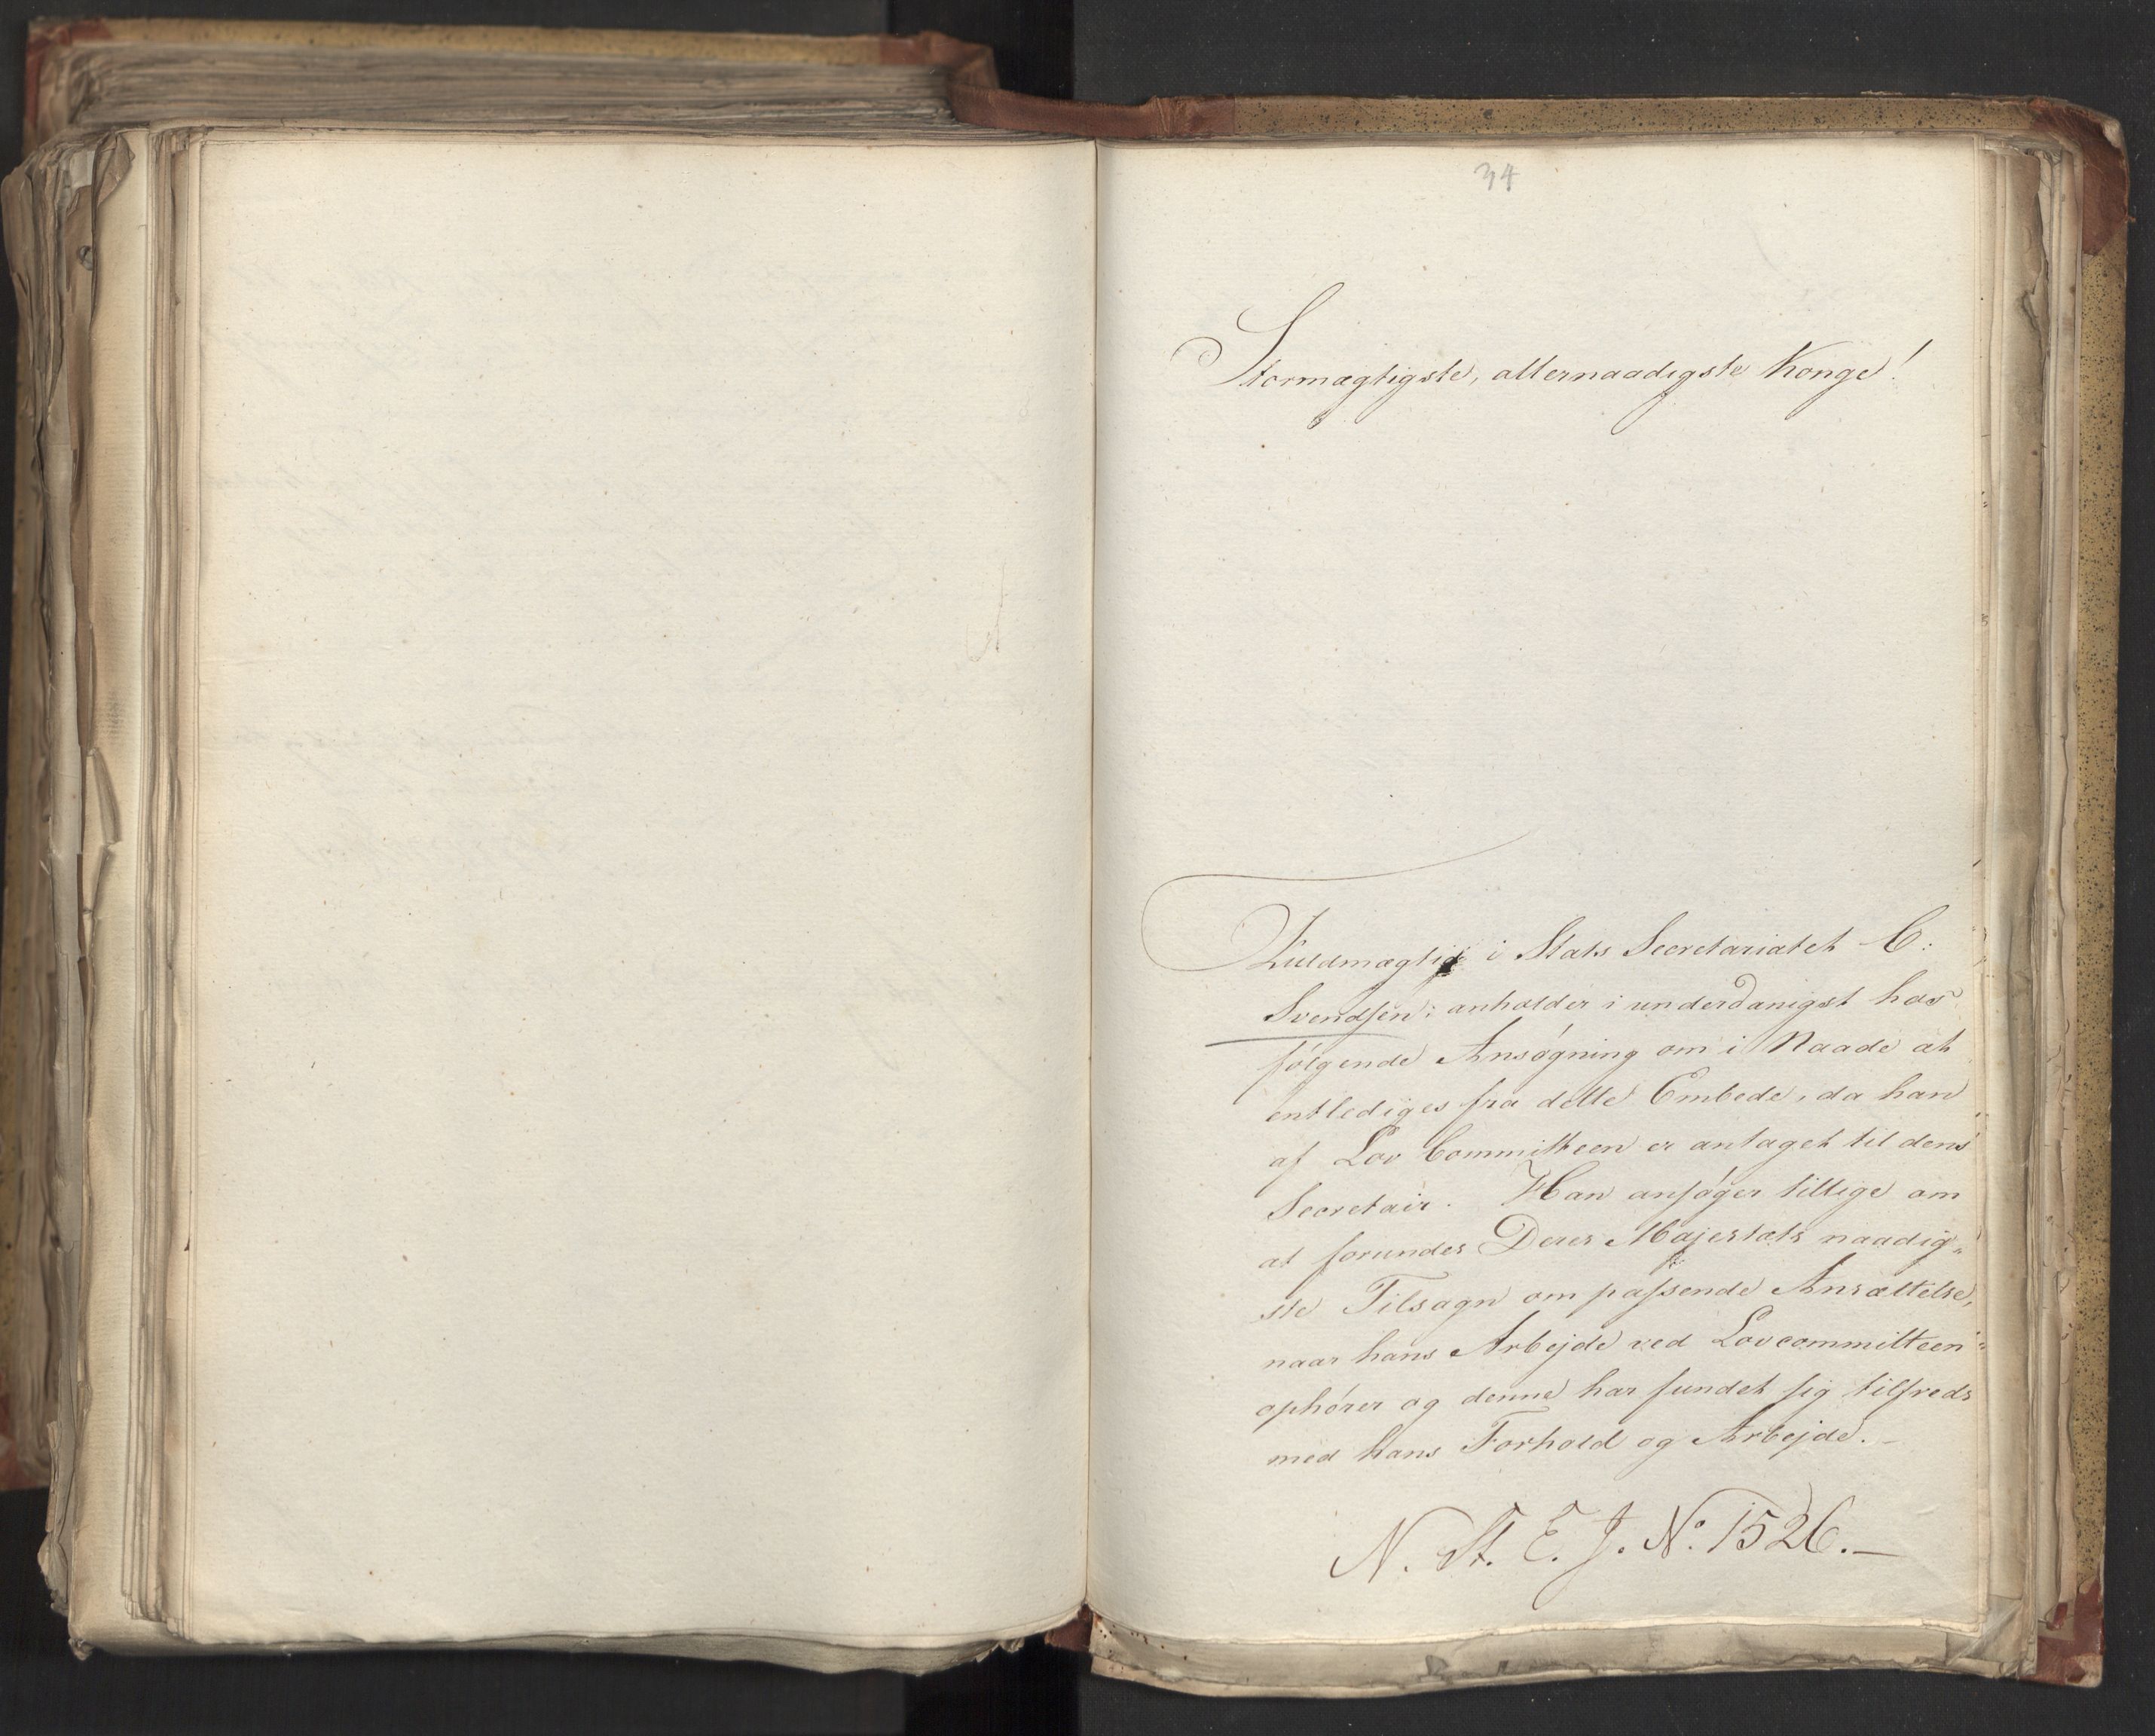 34
Stormægtigste, allernaadigste Konge!
Fuldmægtig i Stats Secretariatet C:
Svendsen: anholder i underdanigst hos
følgende Ansøgning om i Naade at
entlediges fra dette Embede, da han
af Lov Committeen er antaget til dens
Secretair. Han ansøger tillige om
at forundes Deres Majestæts naadig„
ste Tilsagn om passende Ansættelse,
naar hans Arbejde ved Lovcommitteen
ophører og denne har fundet sig tilfreds
med hans Forhold og Arbejde. -
N. St. E. J. No. 1526. -